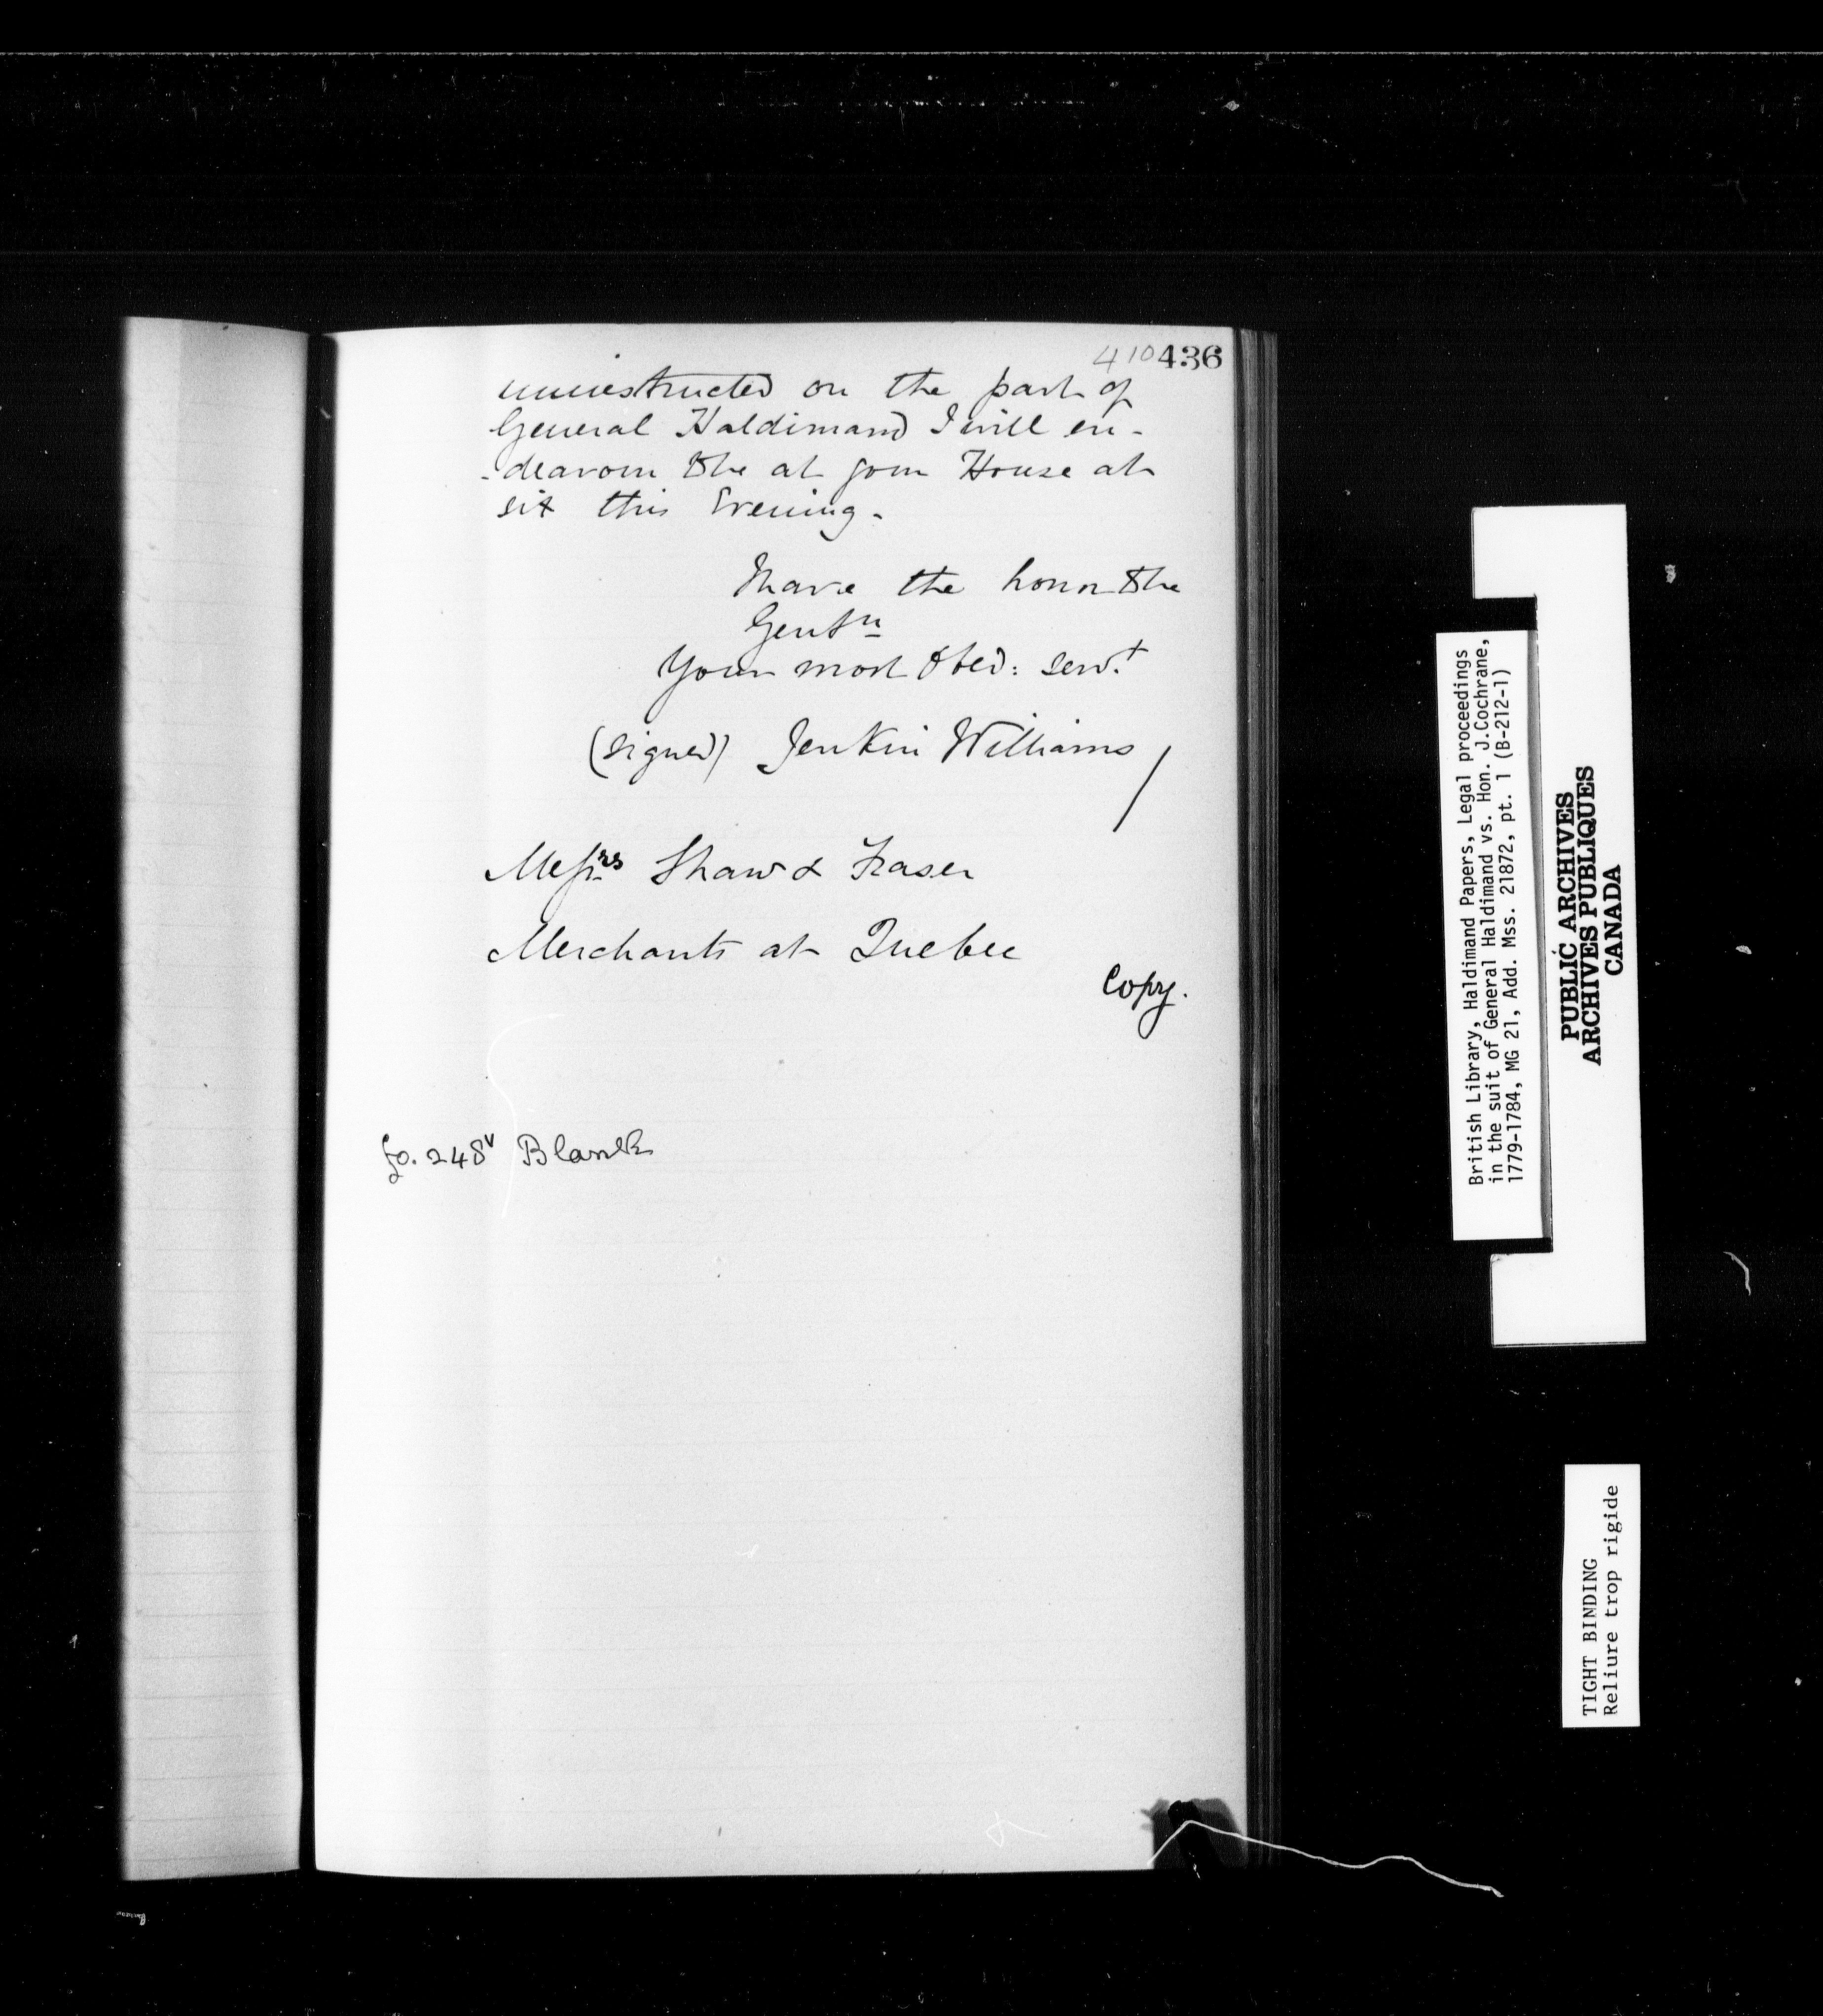 410 436
uninstructed on the part of
General Haldimand I will en-
-deavour to be at your House at
six this Evening.
I have the honor to be
Gentn
Your most Obed: servt
(signed) Jenkin Williams /
Messrs Shaw & Fraser
Merchants at Quebec
Copy.
fo. 248v Blank
British Library, Haldimand Papers, Legal proceedings
in the suit of General Haldimand vs. Hon. J.Cochrane,
1779-1784, MG 21, Add. Mss. 21872, pt. 1 (B-212-1)
PUBLIC ARCHIVES
ARCHIVES PUBLIQUES
CANADA
TIGHT BINDING
Reliure trop rigide